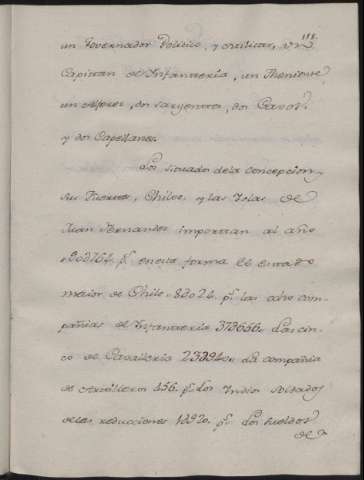 188.
un Governador Politico, y militar, un
Capitan de Infanteria, un Theniente
un Alferez, dos sargentos, dos Cavos,
y dos Capellanes.
Los situados dela concepcion,
su Frontera, Chiloe, y las Islas de
Juan Fernandez importan al año
en esta forma El Estado
maior de Chile las ocho com-
pañias de Infanteria Las cin-
co de Cavalleria La compañia
de Artilleros 456. p.s Los Indios soldados
delas reducciones 1892. p.s Los sueldos
de